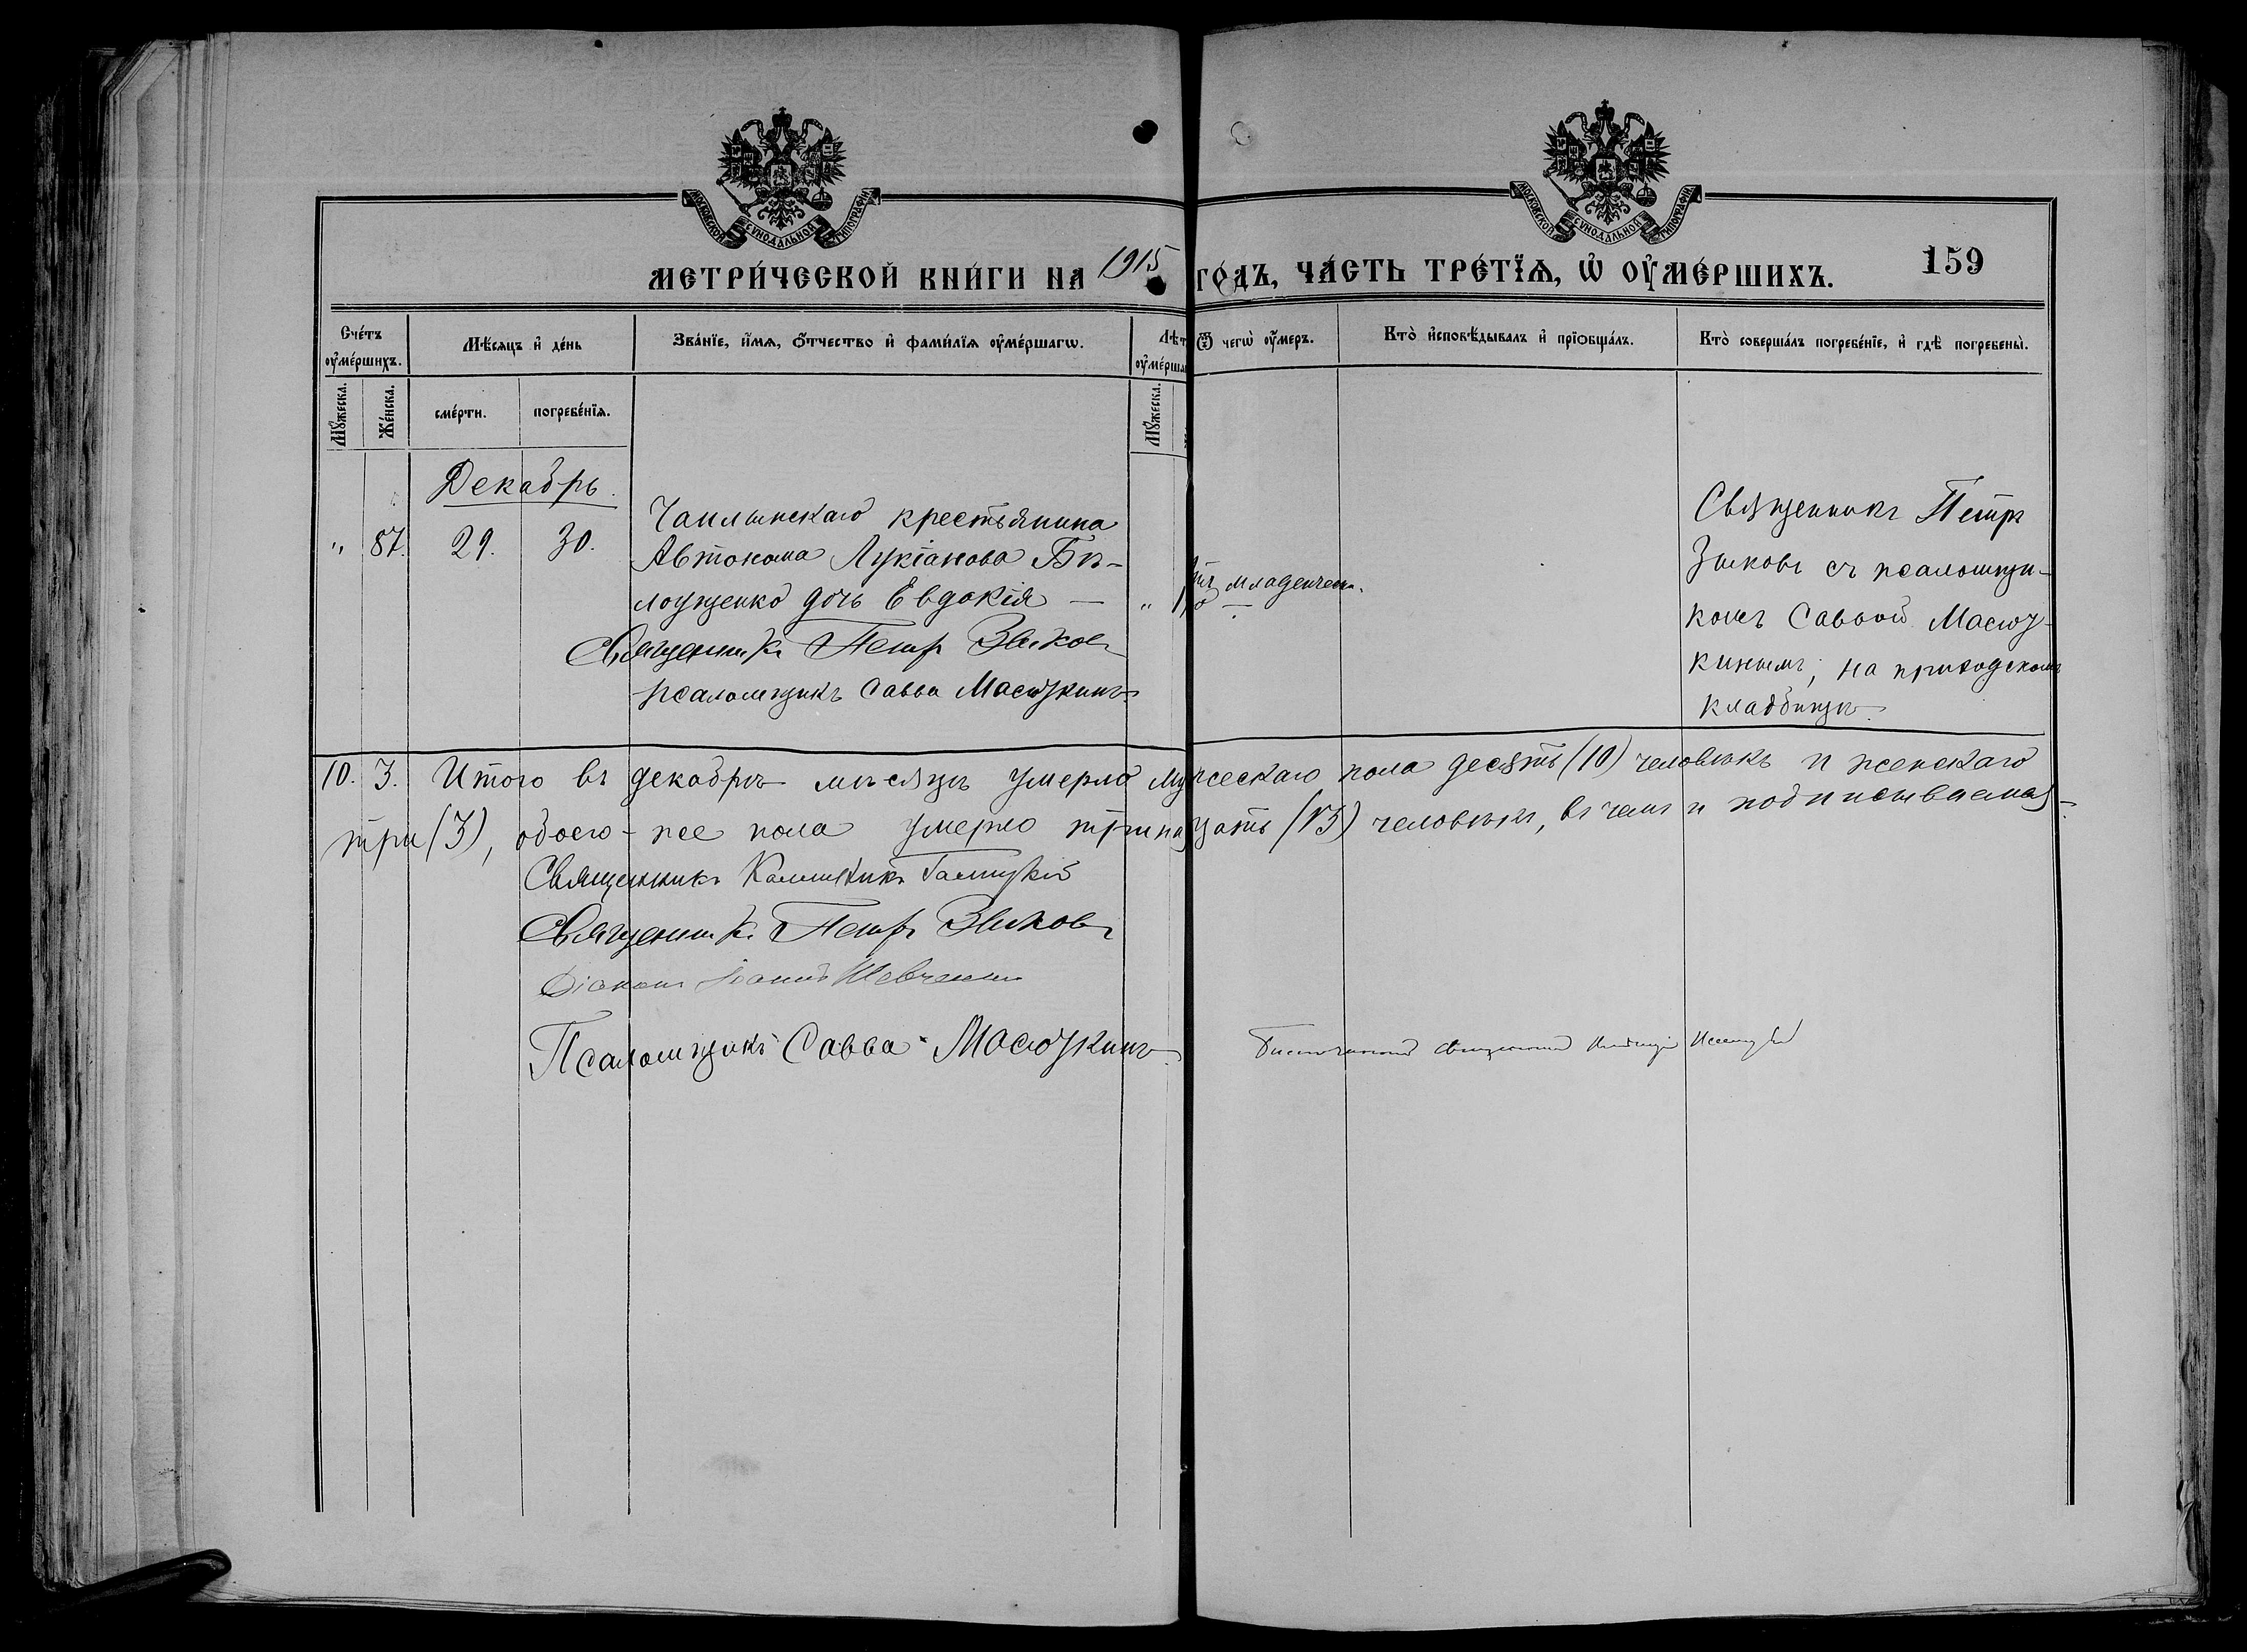 МОСКОВСКОЙ СѴНОДАЛЬНОЙ ТИПОГРАФІИ
МОСКОВСКОЙ СѴНОДАЛЬНОЙ ТИПОГРАФІИ
МЕТРИ́ЧЕСКОЙ КНИ́ГИ НА 1915 ГО́ДЪ, ЧА́СТЬ ТРЕ́ТЇѦ, Ѡ ОУ҆МЕ́РШИХЪ.
159
Сче́тъ оу҆ме́ршихъ.
Мѣ́сяцъ и҆ де́нь
Зва́нїе, и҆́мѧ, ѻ҆́тчество и҆ фами́лїѧ оу҆ме́ршагѡ.
Лѣт
оу҆ме́рша
Ѿ чегѡ̀ оу҆́меръ.
Кто̀ и҆сповѣ́дывалъ и҆ прїобща́лъ.
Кто̀ соверша́лъ погребе́нїе, и҆ гдѣ̀ погребены̀.
Мꙋ́жеска.
Же́нска.
сме́рти.
погребе́нїѧ.
Мꙋ́жеска.
Декабрь.
" 87. 29. 30.
Чаплынскаго крестьянина
Автонома Лукіанова Бѣ-
лоущенко дочь Евдокія —
Священникъ Петръ Зыковъ
псаломщикъ Савва Масюукинъ
"
младенческ.
Священникъ Петръ
Зыковъ съ псаломщи-
комъ Саввой Масюу-
кинымъ, на приходскомъ
кладбищѣ.
10. 3. Итого въ декабрѣ мѣсяцѣ умерло мужескаго пола десять (10) человѣкъ и женскаго
три (3), обоего-же пола умерло тринадцать (13) человѣкъ, въ чемъ и подписываемся.
Священникъ Галицкій
Священникъ Петръ Зыковъ
Діаконъ Іоаннъ Шевченко
Псаломщикъ Савва Масюукинъ